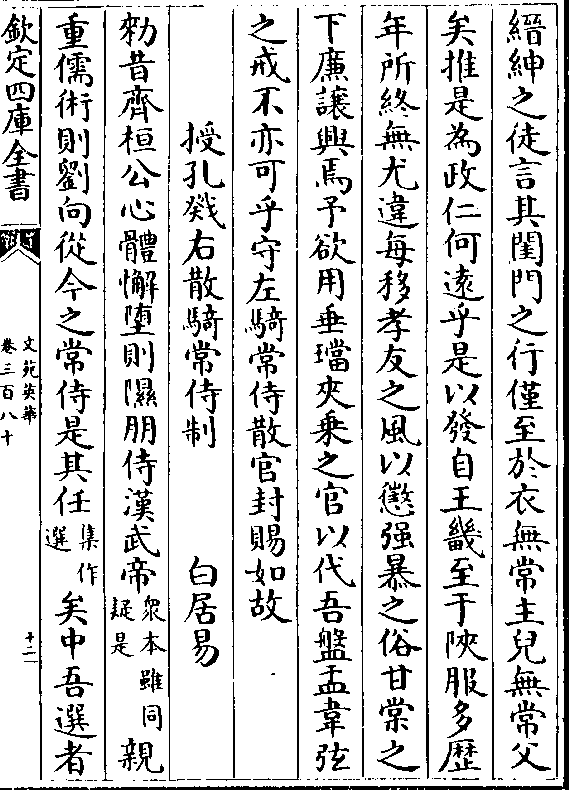 縉紳之徒言其閨門之行僅至於衣無常主兒無常父
矣推是為政仁何遠乎是以發自王畿至于陜服多歴
年所終無尤違每移孝友之風以懲强暴之俗甘棠之
下廉讓興焉予欲用垂璫夾乘之官以代吾盤盂韋弦
之戒不亦可乎守左騎常侍散官封賜如故
授孔戣右散騎常侍制 白居易
勑昔齊桓公心體懈墮則隰朋侍漢武帝衆本雖同疑是親
重儒術則劉向從今之常侍是其任集作選矣中吾選者
欽定四庫全書
文苑英華
卷三百八十
十二